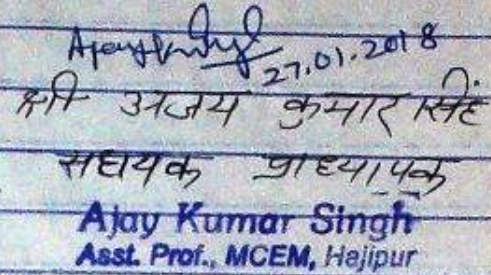 27.01.2018
श्री अजय कुमार सिंह
सहायक प्राध्यापक
Ajay Kumar Singh
Asst. Prof., MCEM, Hajipur